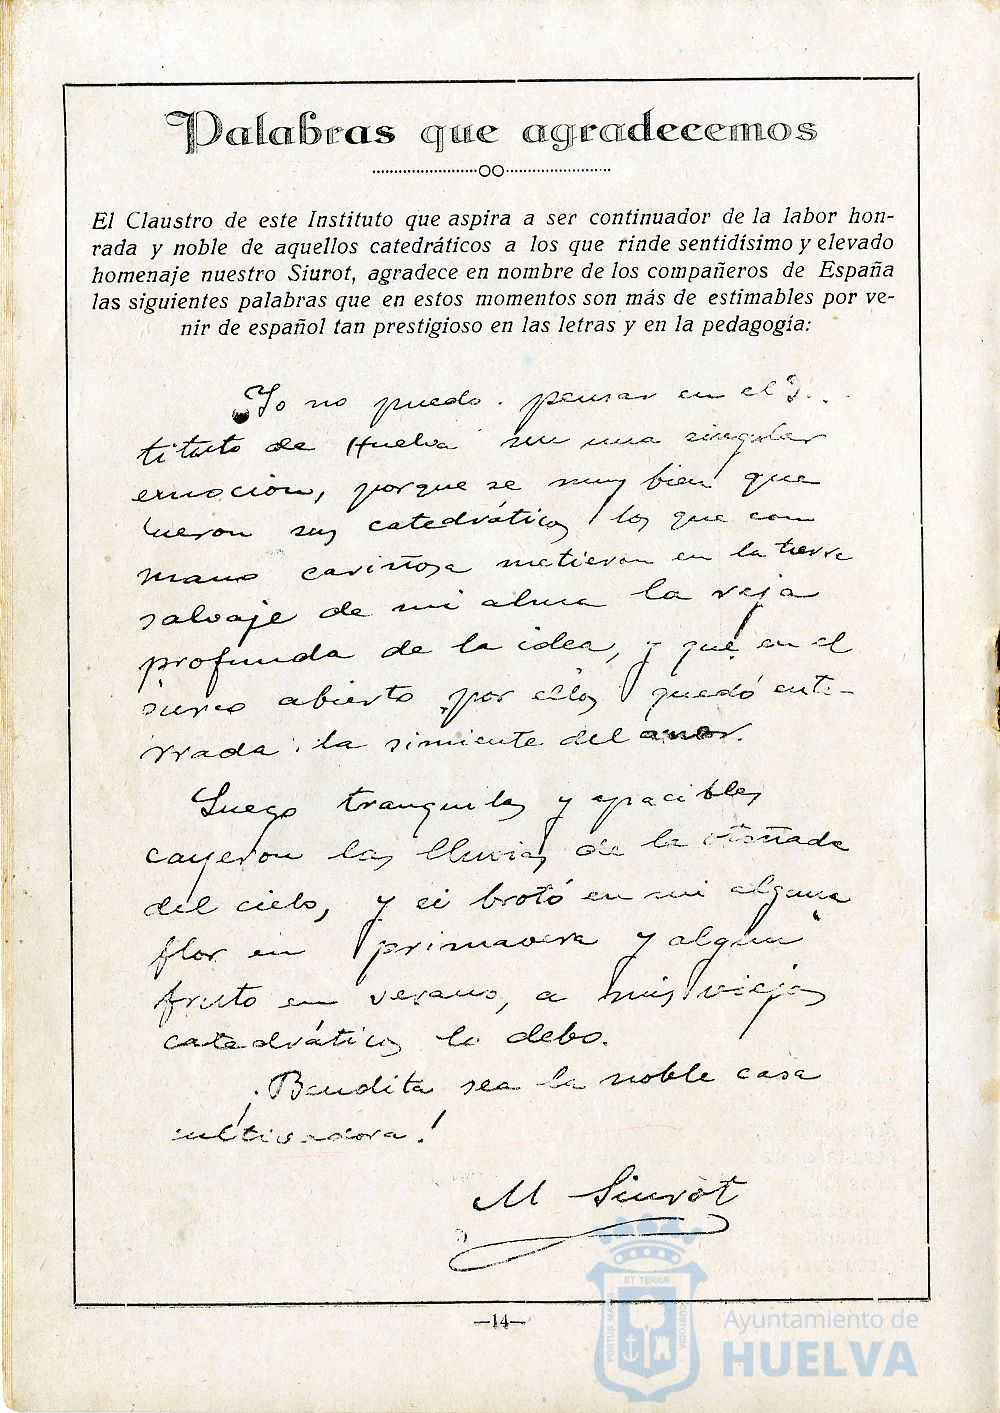 Palabras que agradecemos
El Claustro de este Instituto que aspira a ser continuador de la labor hon-
rada y noble de aquellos catedráticos a los que rinde sentidísimo y elevado
homenaje nuestro Siurot, agradece en nombre de los compañeros de España
las siguientes palabras que en estos momentos son más de estimables por ve-
nir de español tan prestigioso en las letras y en la pedagogía:
Yo no puedo pensar en el
tituto de Huelva sin una singular
emoción, porque se muy bien que
fueron sus catedráticos los que con
mano cariñosa metieron en la tierra
salvaje de mi alma la reja
profunda de la idea, y que en el
surco abierto por ellos quedó ente-
rrada la simiente del amor.
Luego tranquilas y apacibles
cayeron las lluvias de la otoñada
del cielo, y si brotó en mi alguna
flor en primavera y algún
fruto en verano, a mis viejos
catedráticos lo debo.
¡Bendita sea la noble casa
cultivadora!
M Siurot
—14—
PORTUS MARIS
ET TERRÆ
CUSTODIA
Ayuntamiento de
HUELVA